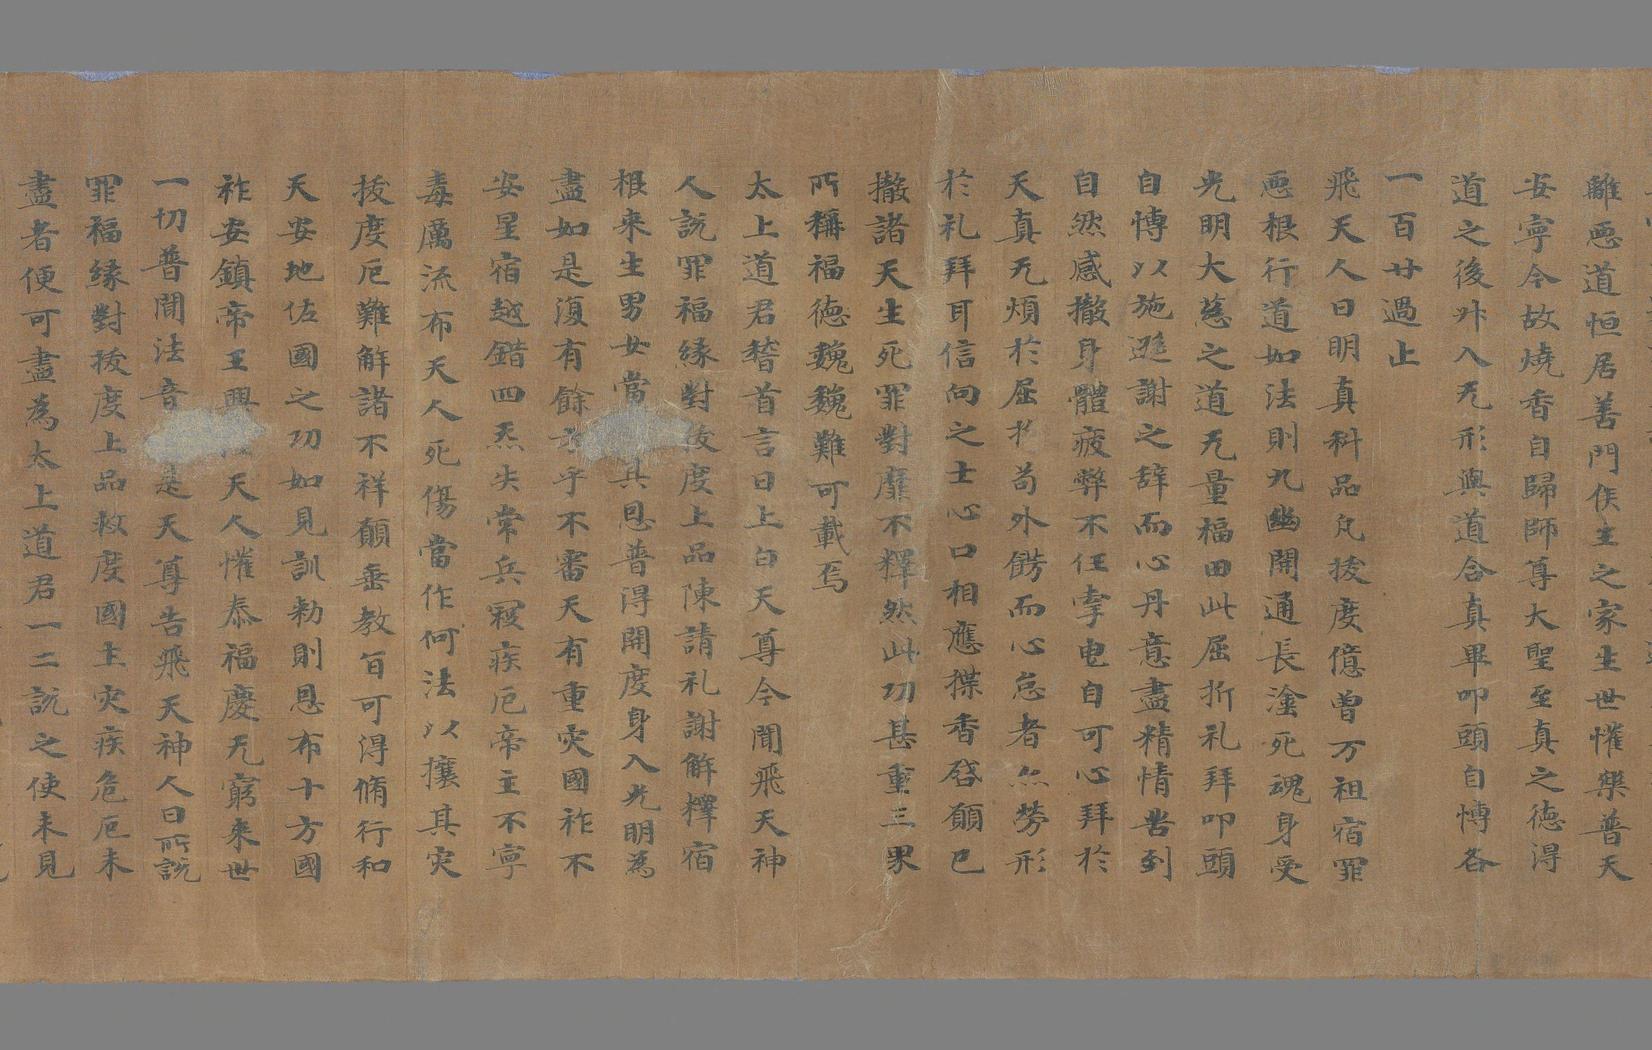 離惡道恒居善門侯王之家生世懽樂普天
安寧今故燒香自歸師尊大聖至真之德得
道之後升入无形與道合真畢叩頭自愽各
一百廿過止
飛天人曰明真科品凢拔度億曽万祖宿罪
惡根行道如法則九幽開通長淦死魂身受
光明大慈之道无量福田此屈折礼拜叩頭
自愽以施遜謝之辞而心丹意盡精情苦到
自然感撤身體疲弊不任寧电自可心拜於
天真无煩於屈折苟外餝而心怠者灬勞形
於礼拜耳信向之士心口相應撚香啓願已
撤諸天生死罪對靡不釋然此功甚重三界
所稱福德巍巍難可載焉
太上道君稽首言曰上白天尊今聞飛天神
人説罪福緣對拔度上品陳請礼謝解釋宿
根来生男女當其恩普得開度身入光明爲
盡如是復有餘乎不審天有重灾國祚不
安星宿越錯四炁失常兵寇疾厄帝主不寧
毒厲流布天人死傷當作何法以攘其灾
拔度厄難解諸不祥願垂教旨可得脩行和
天安地佐國之功如見訓勑則恩布十方國
祚安鎮帝王興天人懽泰福慶无窮来世
一切普聞法音是天尊告飛天神人曰所説
罪福緣對拔度上品救度國土灾疾危厄未
盡者便可盡為太上道君一二説之使未見